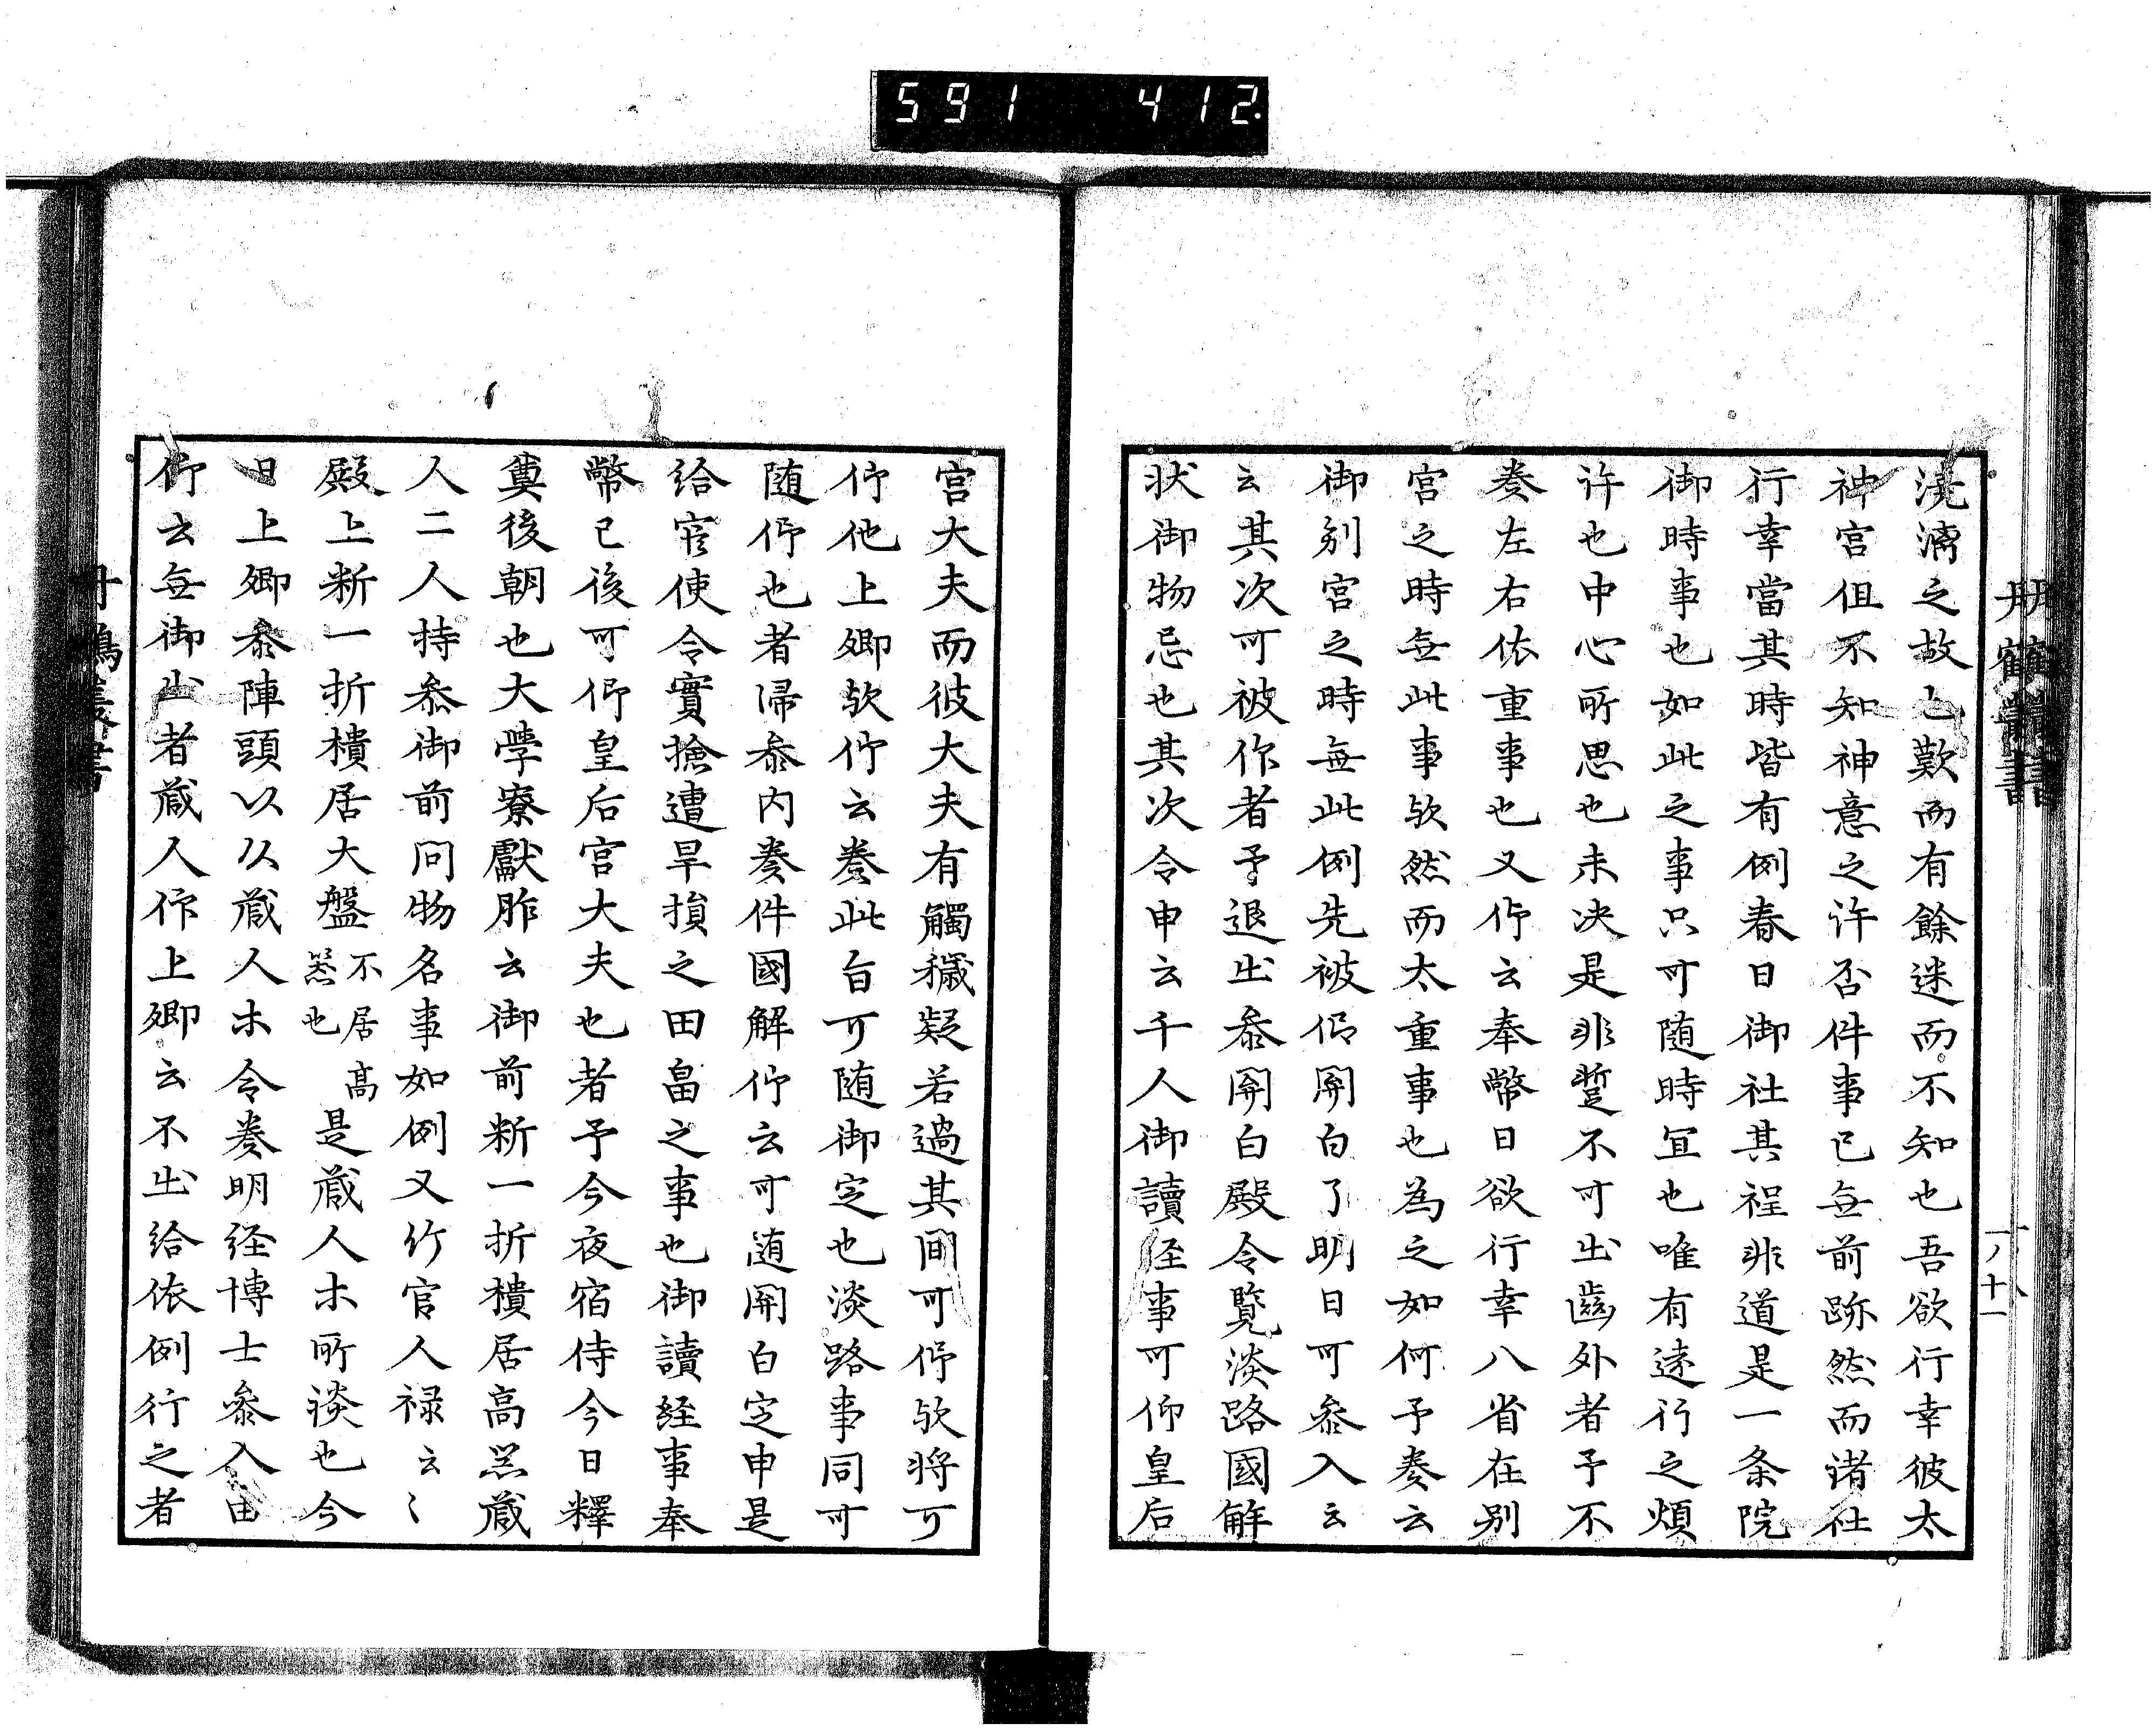 591 412
澆漓之故也歎而有餘迷而不知也吾欲行幸彼太
神宮但不知神意之許否件事已無前跡然而諸社
行幸當其時皆有例春日御社其程非道是一条院
御時事也如此之事只可随時冝也唯有遠行之煩
許也中心所思也未决是非蹔不可出齒外者予不
奏左右依重事也又仰云奉幣日欲行幸八省在別
宮之時無此事欤然而太重事也為之如何予奏云
御別宮之時無此例先被仰関白了明日可参入云
云其次可被作者予退出参関白殿令覧淡路國解
状御物忌也其次令申云千人御讀経事可仰皇后
宮大夫而彼大夫有觸穢疑若過其間可仰欤将可
仰他上卿欤仰云奏此旨可随御定也淡路事同可
随仰也者帰参内奏件國解仰云可随関白定申是
給官使令實撿遭旱損之田畠之事也御讀経事奉
幣已後可仰皇后宮大夫也者予今夜宿侍今日釋
奠後朝也大學寮獻胙云御前断一折樻居高器蔵
人二人持参御前問物名事如例又竹官人禄云〻
殿上断一折樻居大盤不居高器也是蔵人木所談也今
日上卿参陣頭以以蔵人木令奏明経博士参入由
仰云無御出者蔵人仰上卿云不出給依例行之者
丹鶴叢書
丹鶴叢書